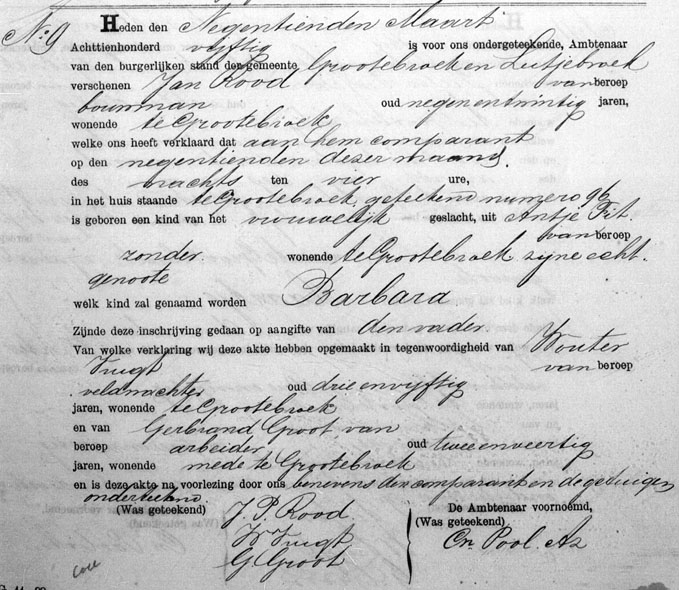 No 9
Heden den Negentienden Maart
Achttienhonderd vijftig is voor ons ondergeteekende, Ambtenaar
van den burgerlijken stand der gemeente Grootebroek en Lutjebroek
verschenen Jan Rood van beroep
bouwman oud negenentwintig jaren,
wonende te Grootebroek
welke ons heeft verklaard dat aan hem comparant
op den negentienden dezer maand.
des nachts ten vier ure,
in het huis staande te Grootebroek, geteekend numero 96
is geboren een kind van het vrouwelijk geslacht, uit Antje Fit.
van beroep
zonder. wonende te Grootebroek zijne echt.
genoote
welk kind zal genaamd worden Barbara
Zijnde deze inschrijving gedaan op aangifte van den vader.
Van welke verklaring wij deze akte hebben opgemaakt in tegenwoordigheid van Wouter
van beroep
veldwachter oud drie envijftig
jaren, wonende te Grootebroek
en van Gerbrand Groot van
beroep arbeider oud twee enveertig
jaren, wonende mede te Grootebroek
en is deze akte na voorlezing door ons benevens den comparant en de getuigen
onderteekend.
(Was geteekend) J. P. Rood
W
G Groot
De Ambtenaar voornoemd,
(Was geteekend)
Cn. Pool. Az